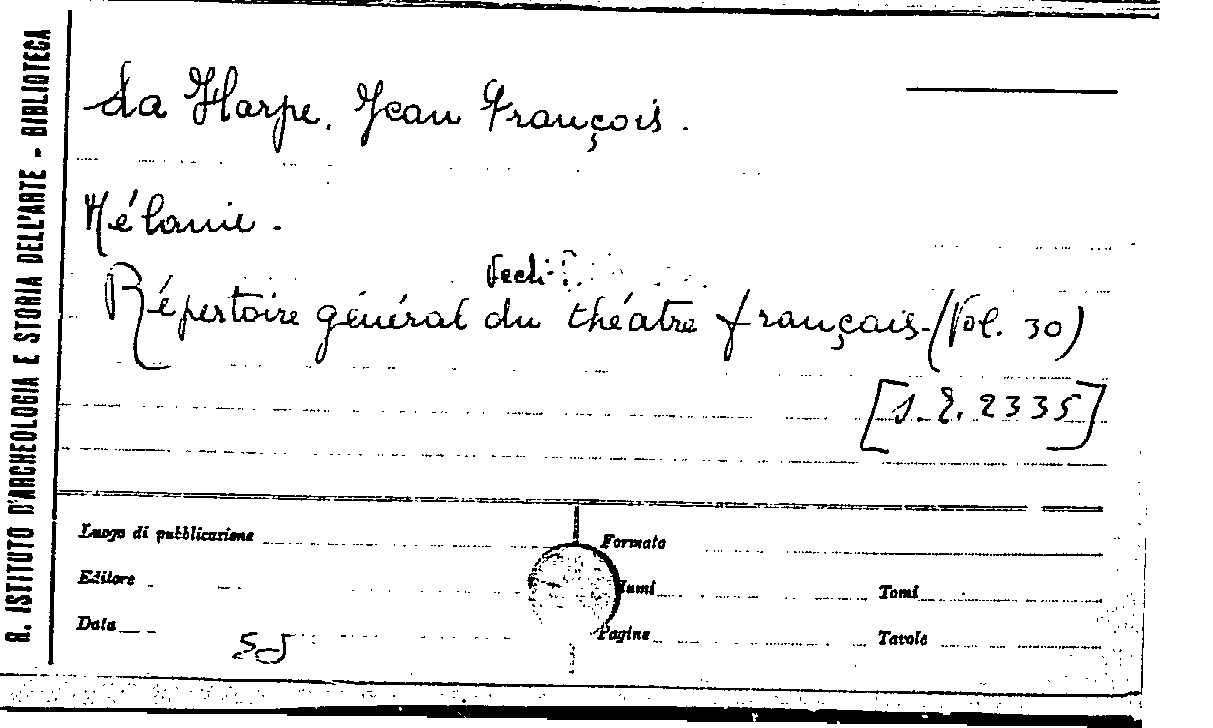 R. ISTITUTO D'ARCHEOLOGIA E STORIA DELL'ARTE - BIBLIOTECA
La Harpe, Jean François.
Mélanie.
Vedi:
Répertoire général du théatre français-(Vol. 30)
[S. E. 2335]
Luogo di pubblicazione
Formato
Editore
lumi
Tomi
Data
Pagine
Tavole